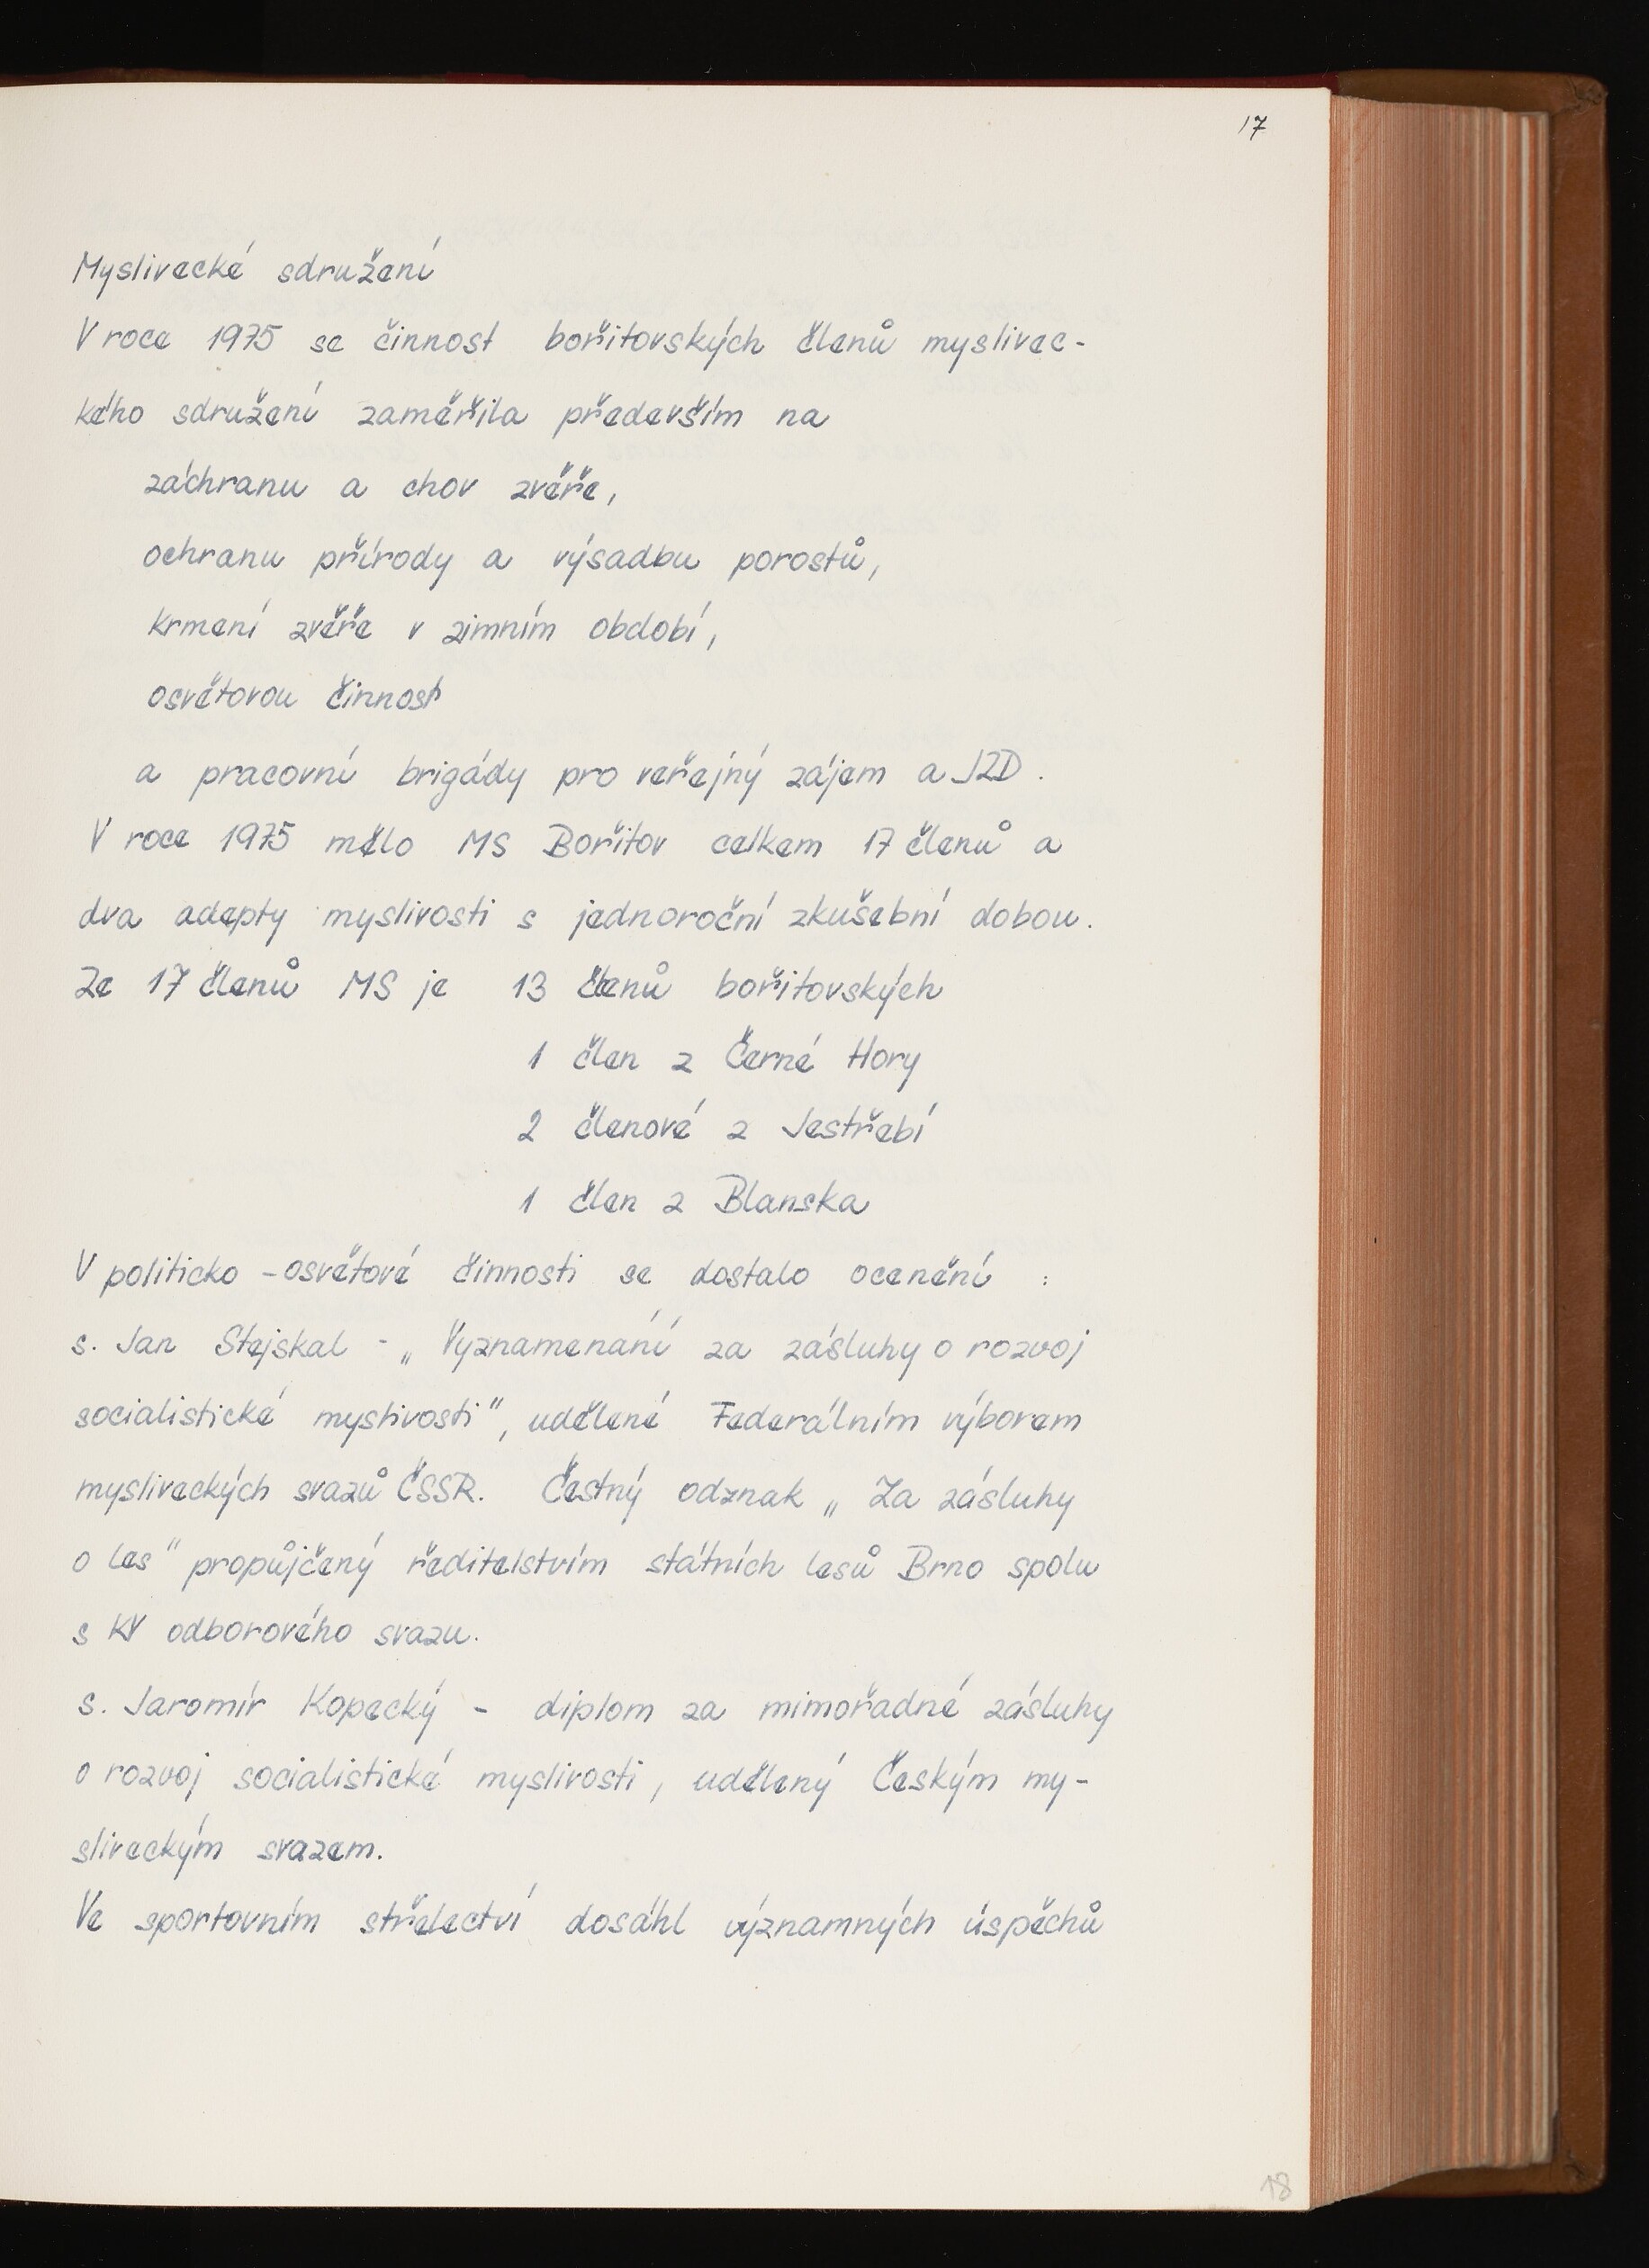 17
Myslivecké sdružení
V roce 1975 se činnost bořitovských členů myslivec-
kého sdružení zaměřila především na
záchranu a chov zvěře,
ochranu přírody a výsadbu porostů,
krmení zvěře v zimním období,
osvětovou činnost
a pracovní brigády pro veřejný zájem a JZD.
V roce 1975 mělo MS Bořitov celkem 17 členů a
dva adepty myslivosti s jednoroční zkušební dobou.
Ze 17 členů MS je 13 členů bořitovských
1 člen z Černé Hory
2 členové z Jestřebí
1 člen z Blanska
V politicko-osvětové činnosti se dostalo ocenění :
s. Jan Stejskal - „Vyznamenání za zásluhy o rozvoj
socialistické myslivosti", udělené Federálním výborem
mysliveckých svazů ČSSR. Čestný odznak „Za zásluhy
o les" propůjčený ředitelstvím státních lesů Brno spolu
s KV odborového svazu.
s. Jaromír Kopecký - diplom za mimořadné zásluhy
o rozvoj socialistické myslivosti, udělený Českým my-
sliveckým svazem.
Ve sportovním střelectví dosáhl významných úspěchů
18